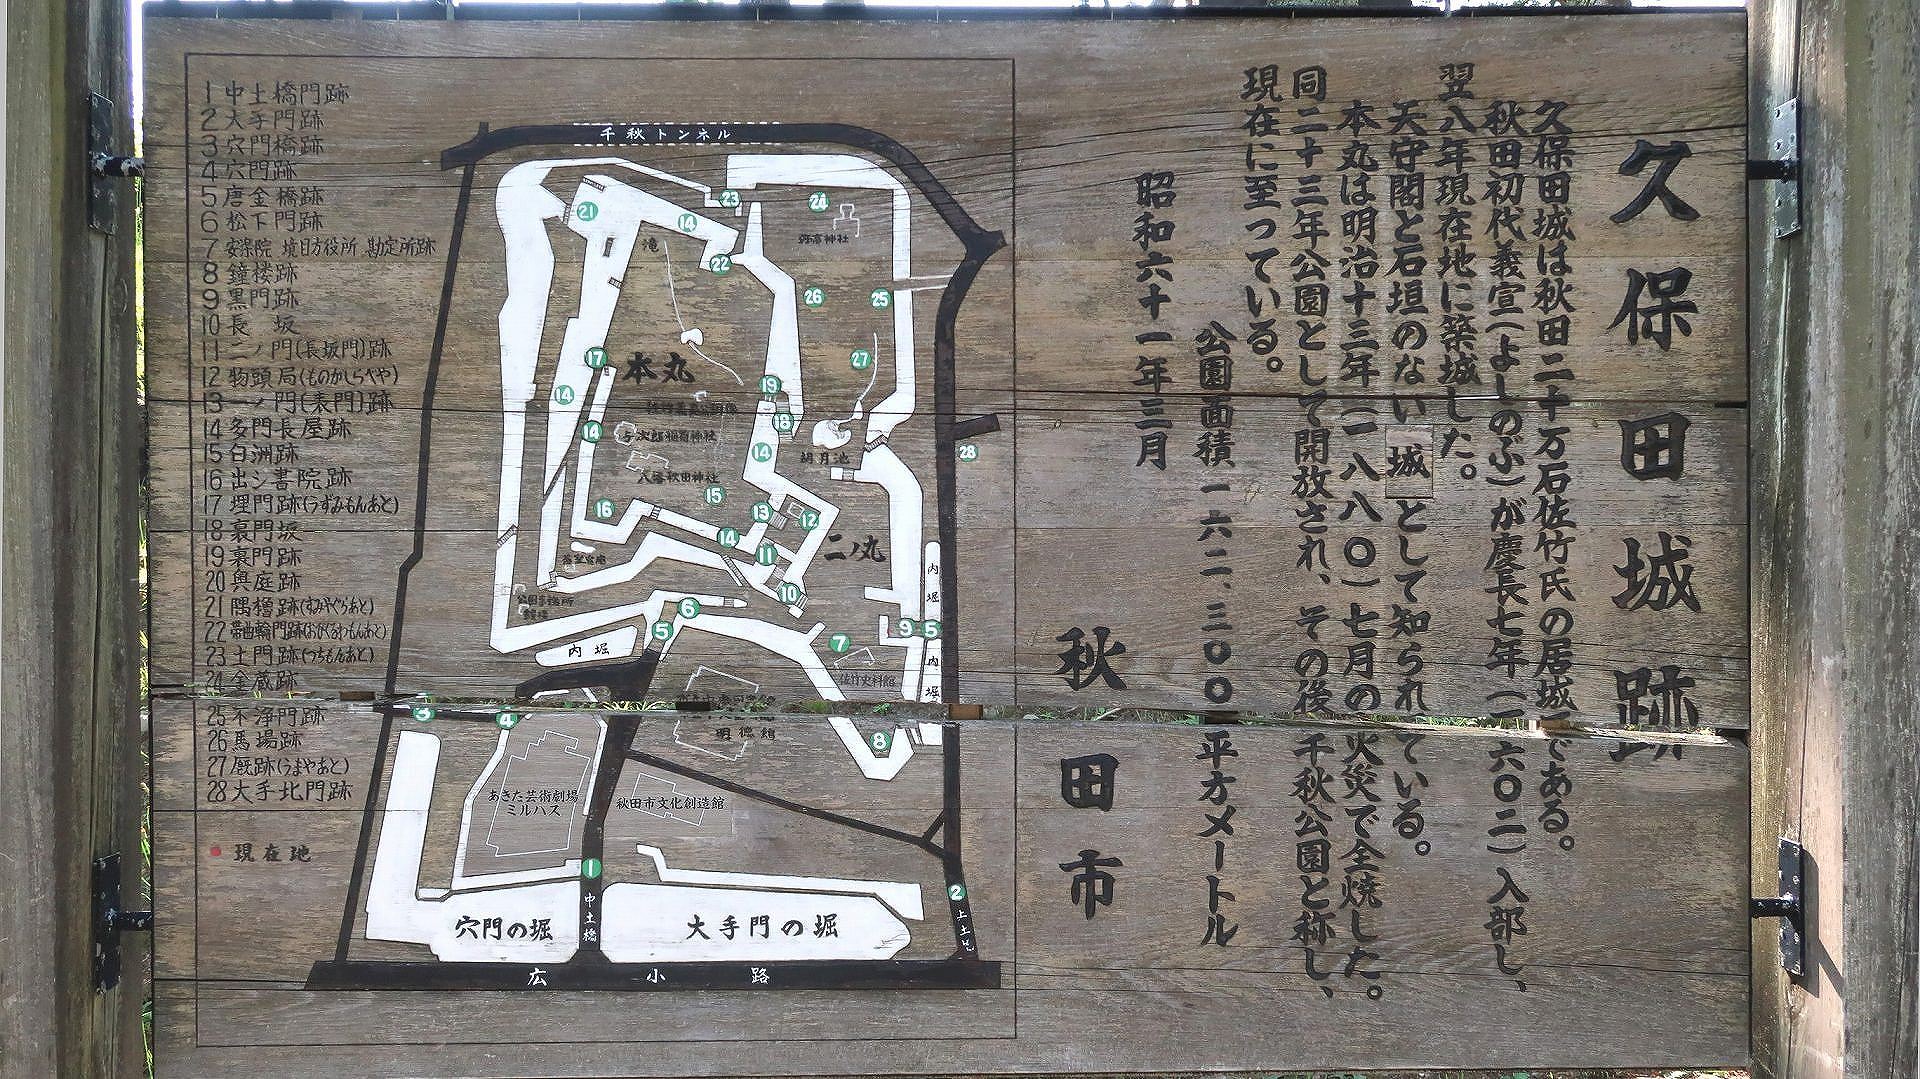 久保田城跡
久保田城は秋田二十万石佐竹氏の居城である。
秋田初代義宣(よしのぶ)が慶長七年(一六〇二)入部し、
翌八年現在地に築城した。
天守閣と石垣のない城として知られている。
本丸は明治十三年(一八八〇)七月の火災で全焼した。
同二十三年公園として開放され、その後千秋公園と称し、
現在に至っている。
公園面積 一六二、三〇〇平方メートル
昭和六十一年三月
秋田市
1 中土橋門跡
2 大手門跡
3 穴門橋跡
4 穴門跡
5 唐金橋跡
6 松下門跡
7 安楽院 境目方役所 勘定所跡
8 鐘楼跡
9 黒門跡
10 長坂
11 二ノ門(長坂門)跡
12 物頭局(ものかしらべや)
13 一ノ門(表門)跡
14 多門長屋跡
15 白洲跡
16 出シ書院跡
17 埋門跡(うずみもんあと)
18 裏門坂
19 裏門跡
20 輿庭跡
21 隅櫓跡(すみやぐらあと)
22 帯曲輪門跡(おびぐるわもんあと)
23 土門跡(つちもんあと)
24 金蔵跡
25 不浄門跡
26 馬場跡
27 厩跡(うまやあと)
28 大手北門跡
現在地
千秋トンネル
23
24
21
14
弥高神社
滝
22
26
25
17
27
本丸
19
14
18
14
与次郎稲荷神社
14
胡月池
28
八幡秋田神社
15
16
13
12
14
二ノ丸
11
内堀
10
公園事務所
6
5
7
9
5
内堀
内堀
佐竹史料館
3
4
明徳館
8
あきた芸術劇場
ミルハス
秋田市文化創造館
1
2
中土橋
上土橋
穴門の堀
大手門の堀
広小路